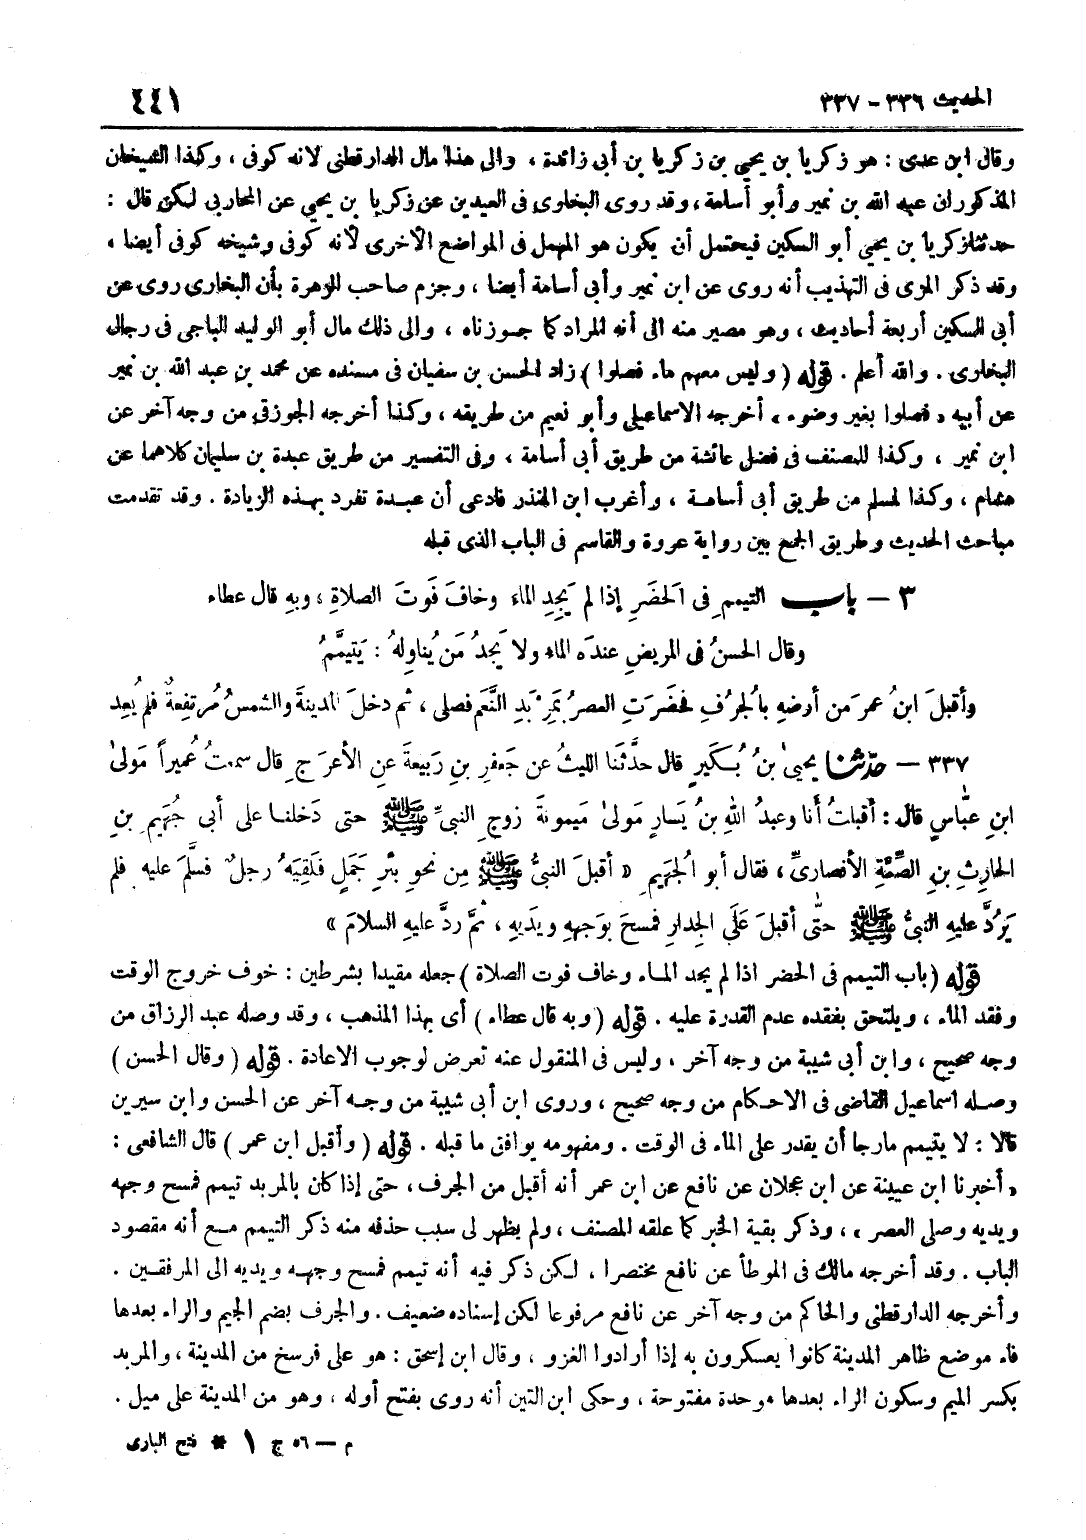 الحديث ٣٣٦ - ٣٣٧
٤٤١
وقال ابن عدى : هو زكريا بن يحيى بن زكريا بن أبى زائدة ، والى هذا مال الدارقطنى لانه كوفى ، وكذا الشيخان
المذكوران عبد الله بن نمير وأبو أسامة ، وقد روى البخارى فى العيدين عن زكريا بن يحيى عن المحاربى لكن قال :
حدثنا زكريا بن يحيى أبو السكين فيحتمل أن يكون هو المهمل فى المواضع الأخرى لأنه كوفى وشيخه كوفى أيضا ،
وقد ذكر المزى فى التهذيب أنه روى عن ابن نمير وأبى أسامة أيضا ، وجزم صاحب الزهرة بأن البخارى روى عن
أبى السكين أربعة أحاديث ، وهو مصير منه الى أنه المراد كما جوزناه ، والى ذلك مال أبو الوليد الباجى فى رجال
البخارى . والله أعلم . قوله ( وليس معهم ماء فصلوا ) زاد الحسن بن سفيان فى مسنده عن محمد بن عبد الله بن نمير
عن أبيه « فصلوا بغير وضوء » أخرجه الاسماعيلى وأبو نعيم من طريقه ، وكذا أخرجه الجوزقى من وجه آخر عن
ابن نمير ، وكذا للمصنف فى فضل عائشة من طريق أبى أسامة ، وفى التفسير من طريق عبدة بن سليمان كلاهما عن
هشام ، وكذا لمسلم من طريق أبى أسامة ، وأغرب ابن المنذر فادعى أن عبدة تفرد بهذه الزيادة . وقد تقدمت
مباحث الحديث وطريق الجمع بين رواية عروة والقاسم فى الباب الذى قبله
٣ - باب التيممِ فى الحَضَرِ إذا لم يَجِدِ الماءَ وخافَ فَوتَ الصلاةِ ، وبهِ قال عطاء
وقال الحسنُ فى المريضِ عندَه الماءُ ولا يَجدُ مَن يُناوِلهُ : يَتيمَّمُ
وأقبلَ ابنُ عمرَ من أرضهِ بالجُرُفِ فحَضَرَتِ العصرُ بمَرْبَدِ النَّعَم فصلى ، ثم دخلَ المدينةَ والشمسُ مُرتفِعةٌ فلم يُعِد
٣٣٧ - حدّثنا يحيىٰ بنُ بُكَيرٍ قال حدَّثَنا الليثُ عن جَعفرِ بنِ رَبيعةَ عنِ الأعرَجِ قال سمعتُ عُميراً مَولىٰ
ابنِ عبّاسٍ قال : أقبلتُ أنا وعبدُ اللهِ بنُ يَسارٍ مَولىٰ مَيمونةَ زوجِ النبىِّ ﷺ حتى دَخلنا على أبى جُهَيمِ بنِ
الحارِثِ بنِ الصِّمَّةِ الأنصارىِّ ، فقال أبو الجُهَيمِ « أقبلَ النبىُّ ﷺ مِن نحوِ بئرِ جَمَلٍ فَلَقِيَهُ رجلٌ فسلَّمَ عليهِ فلم
يَرُدَّ عليهِ النبىُّ ﷺ حتَّى أقبلَ عَلَى الجِدارِ فمسحَ بوَجههِ ويدَيهِ ، ثمَّ ردَّ عليهِ السلامَ »
قوله ( باب التيمم فى الحضر اذا لم يجد الماء وخاف فوت الصلاة ) جعله مقيدا بشرطين : خوف خروج الوقت
وفقد الماء ، ويلتحق بفقده عدم القدرة عليه . قوله ( وبه قال عطاء ) أى بهذا المذهب ، وقد وصله عبد الرزاق من
وجه صحيح ، وابن أبى شيبة من وجه آخر ، وليس فى المنقول عنه تعرض لوجوب الاعادة . قوله ( وقال الحسن )
وصله اسماعيل القاضى فى الاحكام من وجه صحيح ، وروى ابن أبى شيبة من وجه آخر عن الحسن وابن سيرين
قالا : لا يتيمم مارجا أن يقدر على الماء فى الوقت . ومفهومه يوافق ما قبله . قوله ( وأقبل ابن عمر ) قال الشافعى :
« أخبرنا ابن عيينة عن ابن عجلان عن نافع عن ابن عمر أنه أقبل من الجرف ، حتى إذا كان بالمربد تيمم فمسح وجهه
ويديه وصلى العصر » ، وذكر بقية الخبر كما علقه المصنف ، ولم يظهر لى سبب حذفه منه ذكر التيمم مع أنه مقصود
الباب . وقد أخرجه مالك فى الموطأ عن نافع مختصرا ، لكن ذكر فيه أنه تيمم فمسح وجهه ويديه الى المرفقين .
وأخرجه الدارقطنى والحاكم من وجه آخر عن نافع مرفوعا لكن إسناده ضعيف . والجرف بضم الجيم والراء بعدها
فاء موضع ظاهر المدينة كانوا يعسكرون به إذا أرادوا الغزو ، وقال ابن إسحق : هو على فرسخ من المدينة ، والمربد
بكسر الميم وسكون الراء بعدها موحدة مفتوحة ، وحكى ابن التين أنه روى بفتح أوله ، وهو من المدينة على ميل .
م - ٥٦ ج ١ * فتح البارى